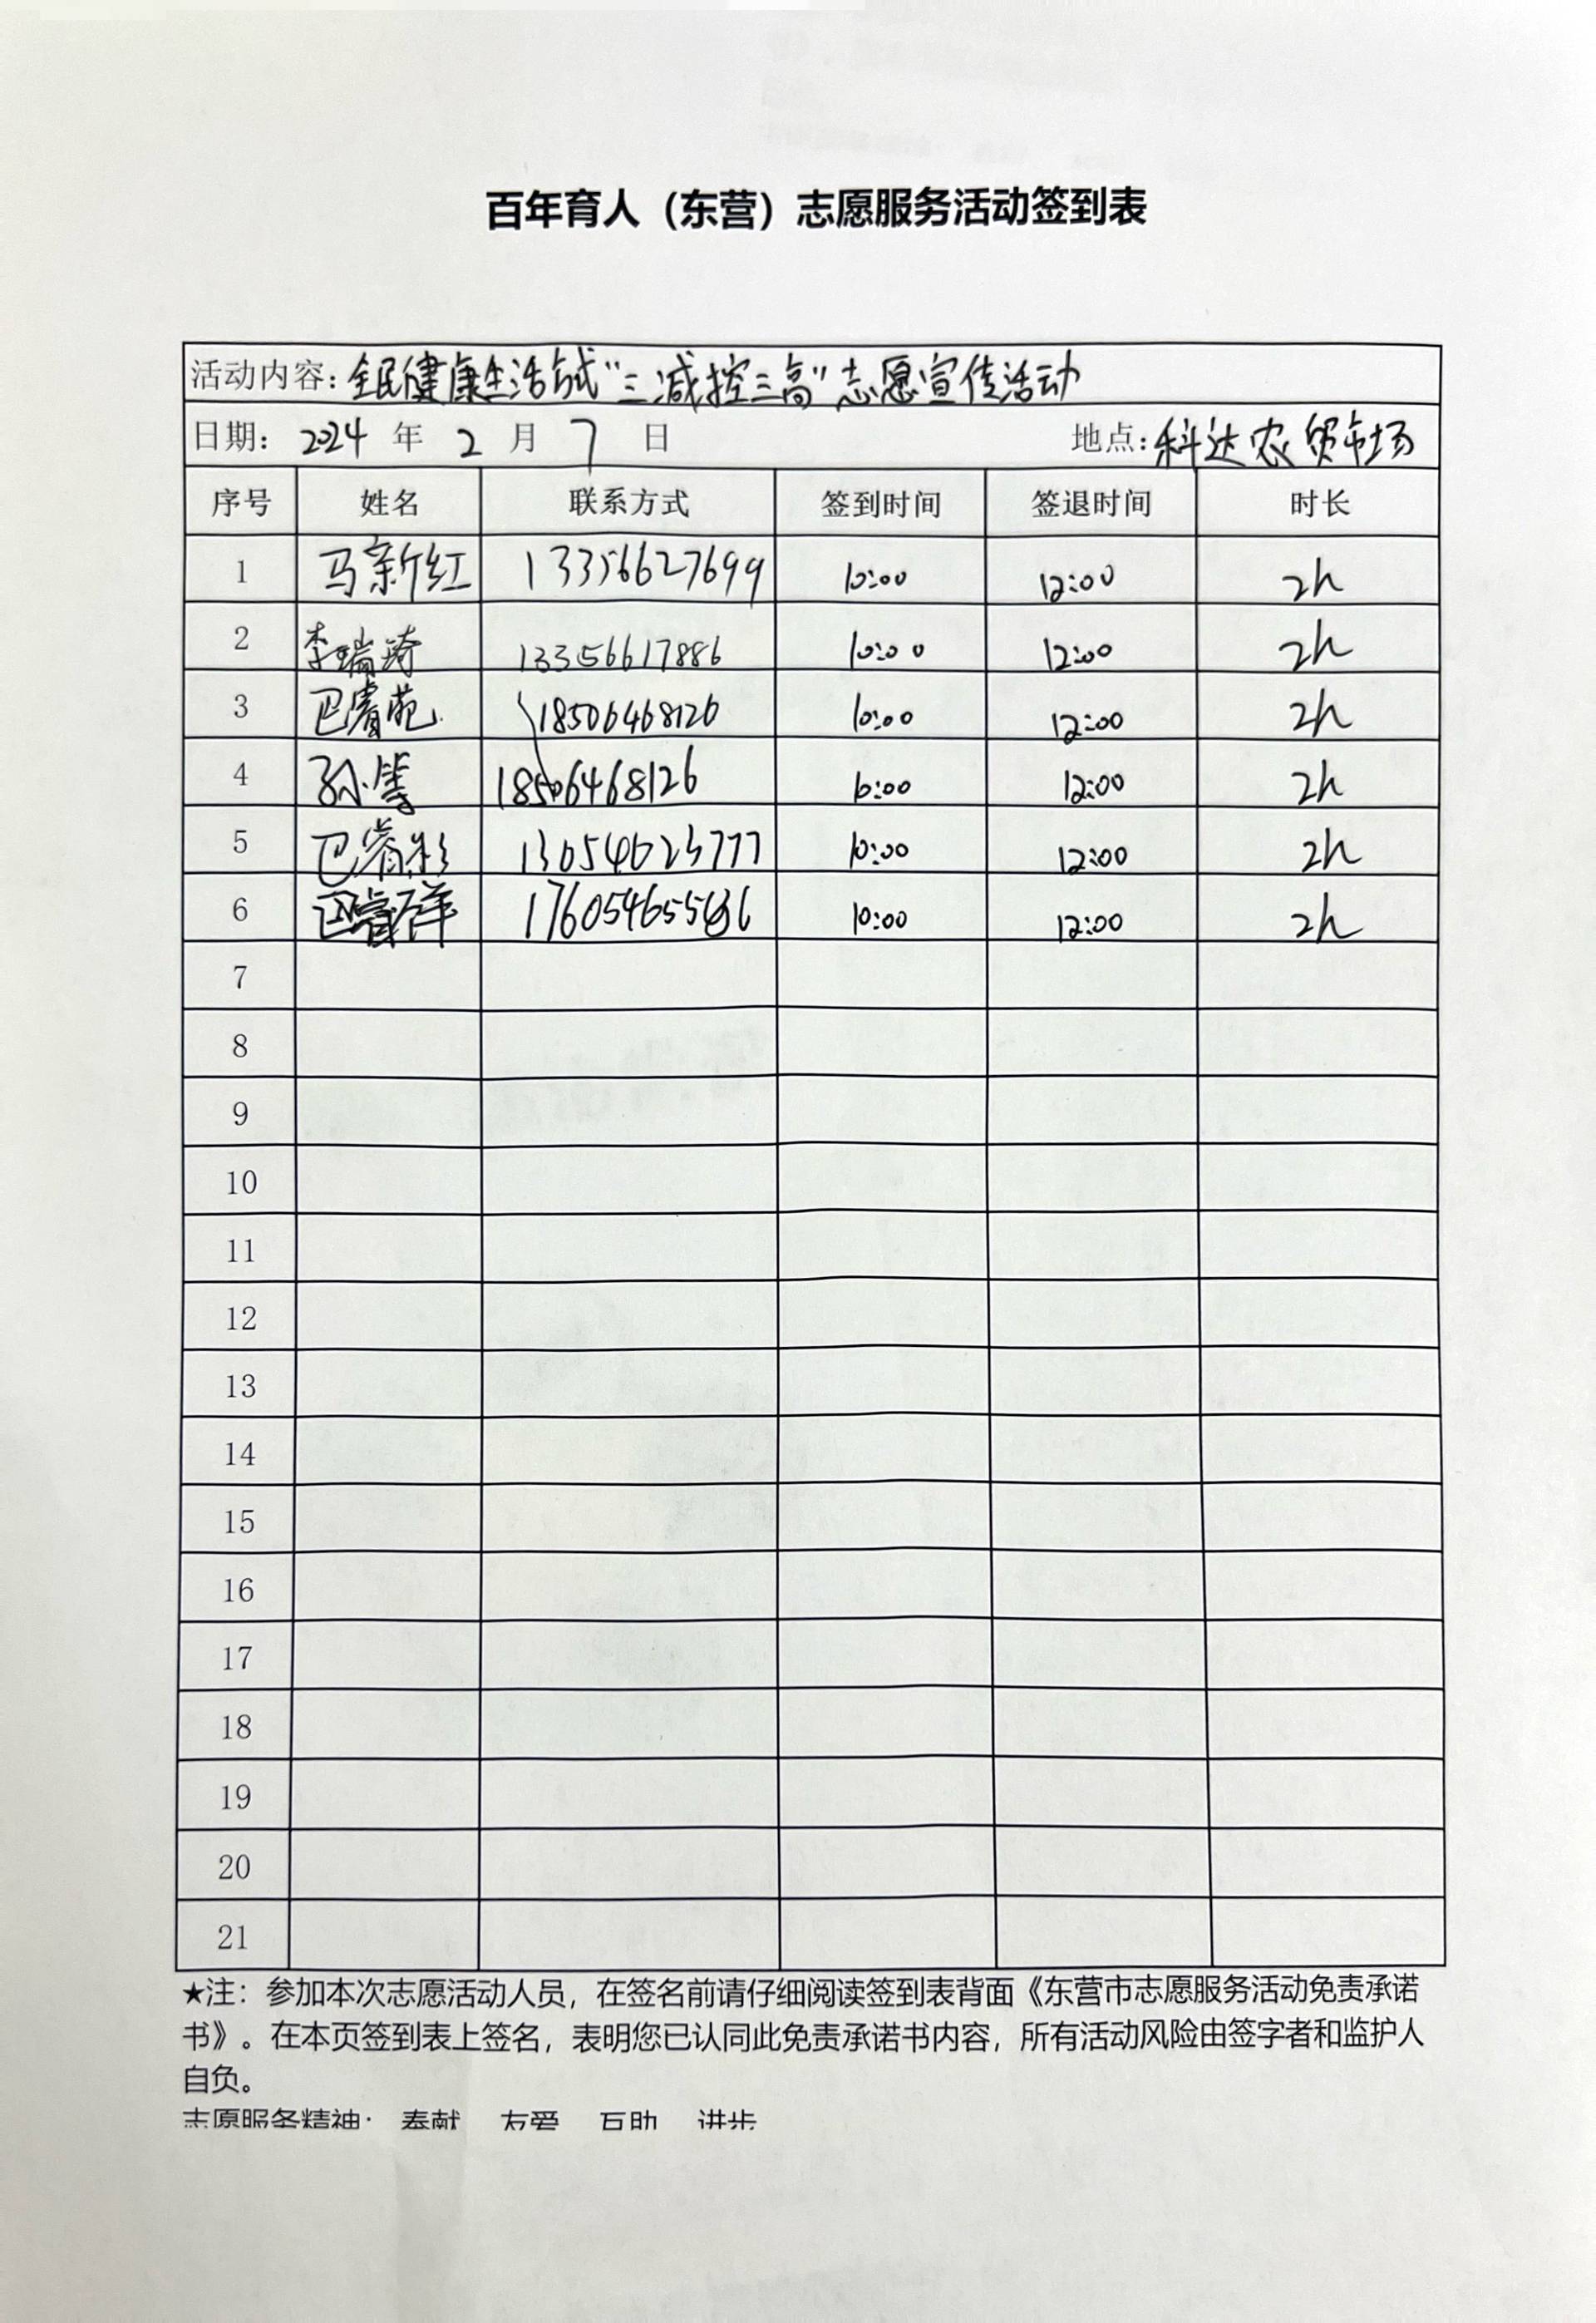 百年育人（东营）志愿服务活动签到表
活动内容：全民健康生活方式"三减控三高"志愿宣传活动
日期： 2024 年 2 月 7 日 地点：科达农贸市场
序号 姓名 联系方式 签到时间 签退时间 时长
1 马新红 13356627699 10:00 12:00 2h
2 李瑞琦 13356617886 10:00 12:00 2h
3 巴睿苑 18506468126 10:00 12:00 2h
4 孙 18506468126 10:00 12:00 2h
5 巴睿杉 13054623777 10:00 12:00 2h
6 巴睿洋 10:00 12:00 2h
7
8
9
10
11
12
13
14
15
16
17
18
19
20
21
★注：参加本次志愿活动人员，在签名前请仔细阅读签到表背面《东营市志愿服务活动免责承诺
书》。在本页签到表上签名，表明您已认同此免责承诺书内容，所有活动风险由签字者和监护人
自负。
志愿服务精神： 奉献 友爱 互助 进步